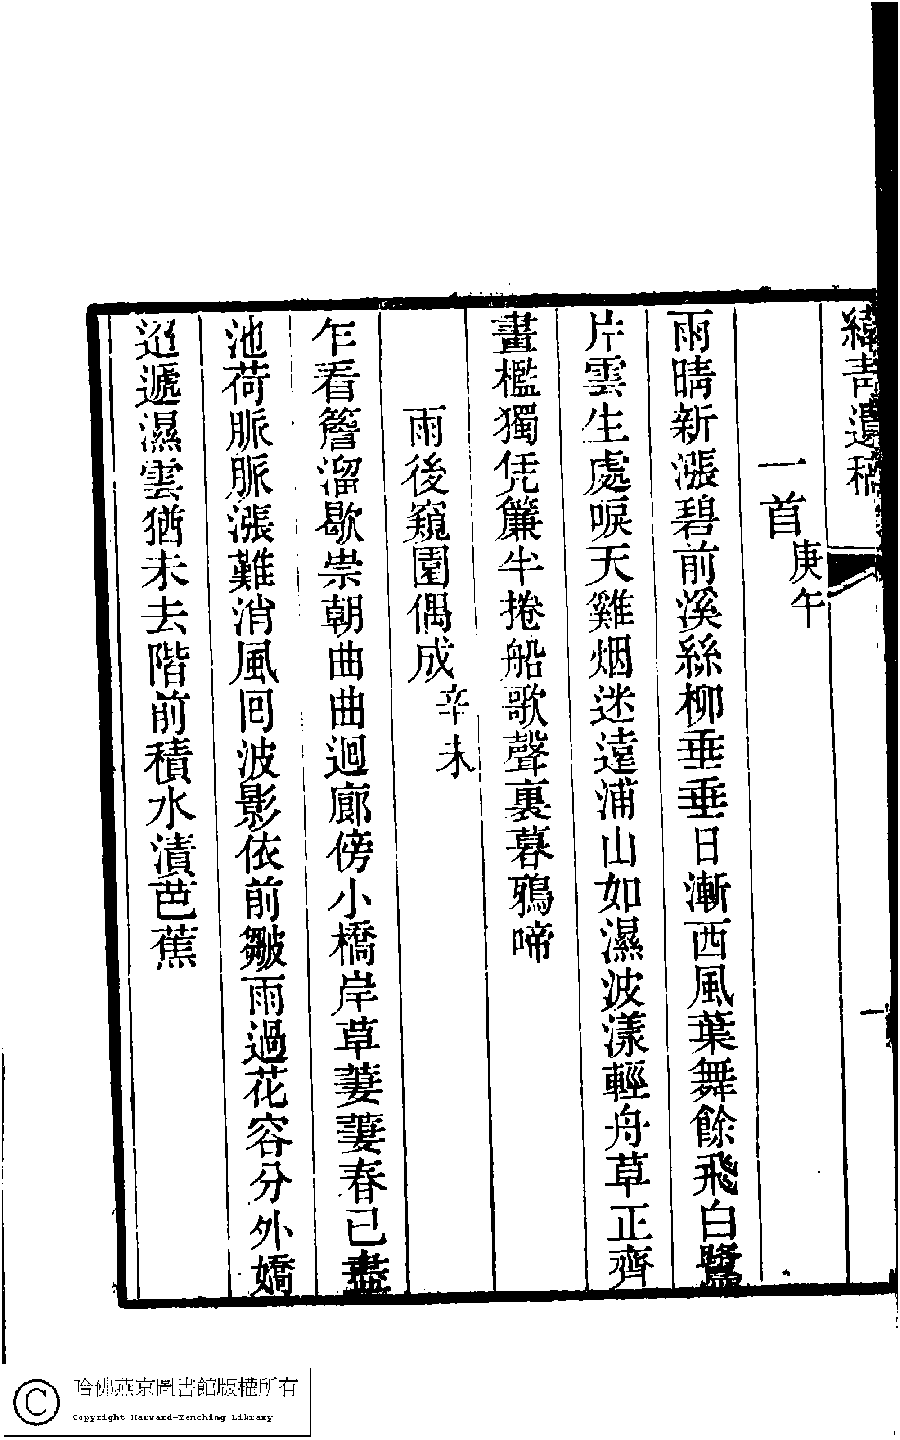 緯青遺稿
一
一首庚午
雨晴新漲碧前溪絲柳垂垂日漸西風葉舞餘飛白鷺
片雲生處唳天雞烟迷遠浦山如濕波漾輕舟草正齊
畫檻獨凭簾半捲船歌聲裏暮鴉啼
雨後窺園偶成辛未
乍看簷溜歇崇朝曲曲迴廊傍小橋岸草萋萋春已盡
池荷脈脈漲難消風回波影依前皺雨過花容分外嬌
迢遞濕雲猶未去階前積水漬芭蕉
哈佛燕京圖書館版權所有
Copyright Harvard-Yenching Library